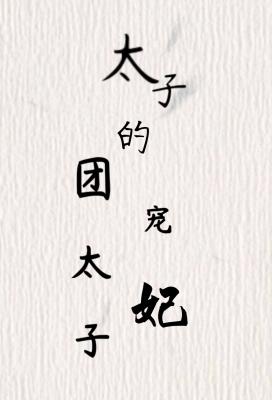 太子的宠妃
团太子